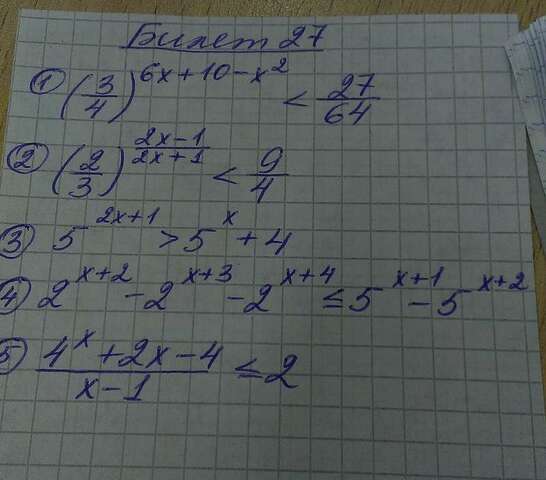 Билет 27
① (3/4)^(6x+10-x²) < 27/64
② (2/3)^((2x-1)/(2x+1)) < 9/4
③ 5^(2x+1) > 5^x + 4
④ 2^(x+2) - 2^(x+3) - 2^(x+4) ≤ 5^(x+1) - 5^(x+2)
⑤ (4^x + 2x - 4)/(x-1) ≤ 2